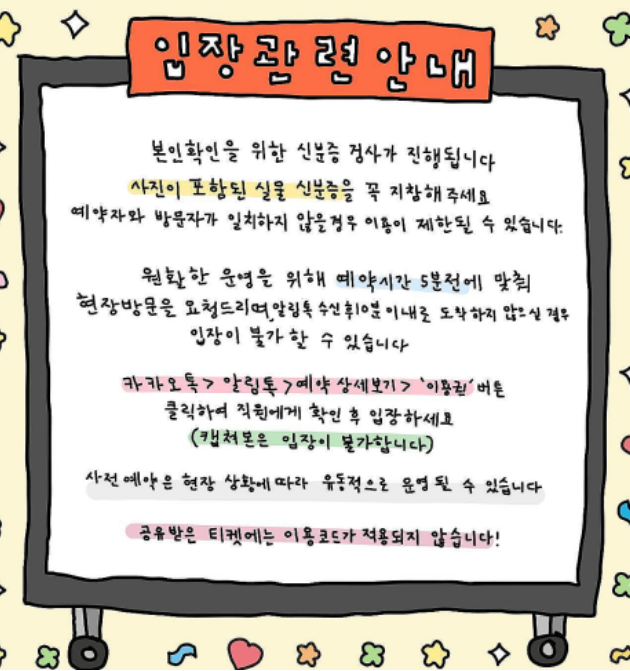 입장관련안내
본인확인을 위한 신분증 검사가 진행됩니다
사진이 포함된 실물 신분증을 꼭 지참해주세요
예약자와 방문자가 일치하지 않을경우 이용이 제한될 수 있습니다.
원활한 운영을 위해 예약시간 5분전에 맞춰
현장방문을 요청드리며, 알림톡 수신 후 10분 이내로 도착하지 않으실 경우
입장이 불가할 수 있습니다
카카오톡 > 알림톡 > 예약 상세보기 > '이용권' 버튼
클릭하여 직원에게 확인 후 입장하세요
(캡쳐본은 입장이 불가합니다)
사전예약은 현장 상황에 따라 유동적으로 운영 될 수 있습니다
공유받은 티켓에는 이용코드가 적용되지 않습니다!